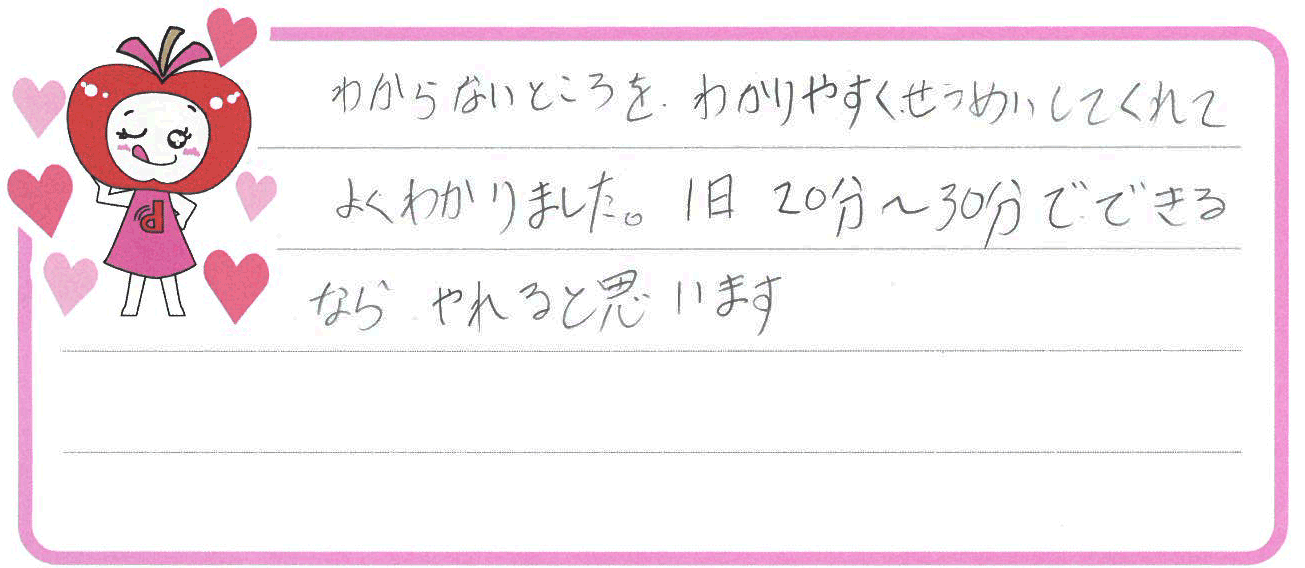 わからないところを、わかりやすくせつめいしてくれて
よくわかりました。1日 20分～30分でできる
なら やれると思います